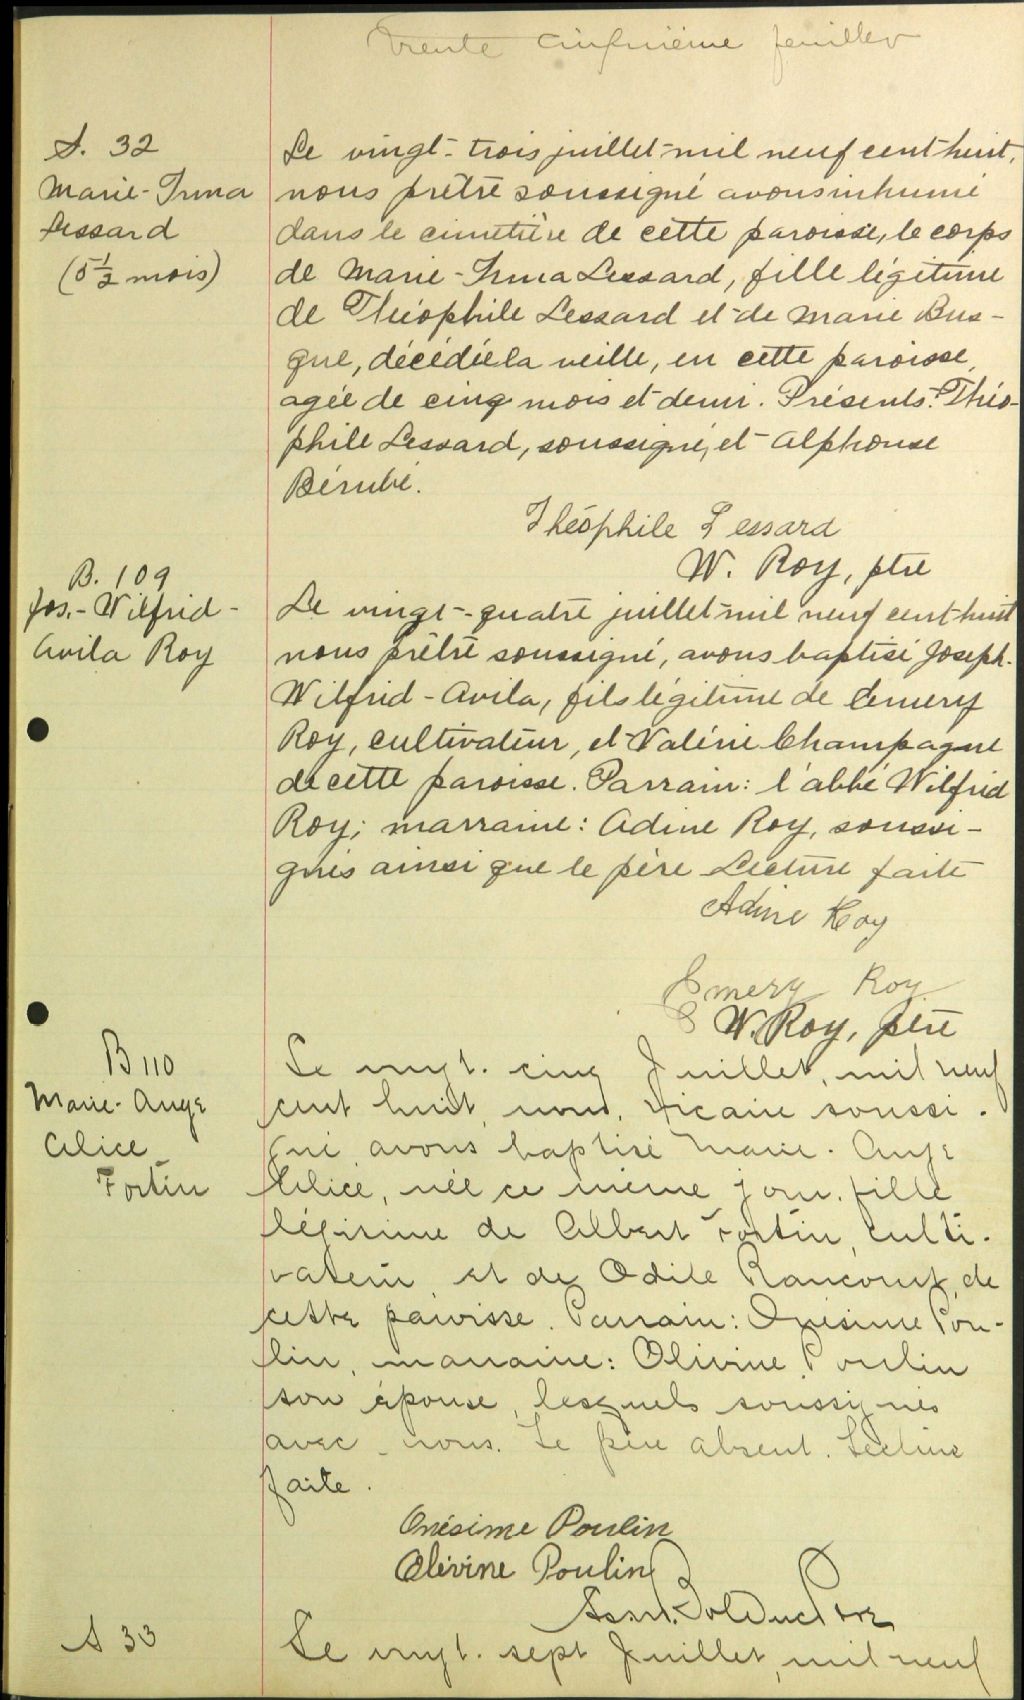 trente cinquième feuillet
S. 32
Marie-Irma
Lessard
(5 1/2 mois)
Le vingt-trois juillet mil neuf cent huit,
nous prêtre soussigné avons inhumé
dans le cimetière de cette paroisse, le corps
de Marie-Irma Lessard, fille légitime
de Théophile Lessard et de Marie Bus-
que, décédée la veille, en cette paroisse,
agée de cinq mois et demi. Présents: Théo-
phile Lessard, soussigné, et Alphonse
Bérubé.
Théophile Lessard
W. Roy, ptre
B. 109
Jos.-Wilfrid-
Avila Roy
Le vingt-quatre juillet mil neuf cent huit
nous prêtre soussigné, avons baptisé Joseph-
Wilfrid-Avila, fils légitime de Emery
Roy, cultivateur, et Valérie Champagne
de cette paroisse. Parrain: l'abbé Wilfrid
Roy; marraine: Adine Roy, soussi-
gnés ainsi que le père Lecture faite
Adine Roy
Emery Roy
W. Roy, ptre
B 110
Marie-Ange
Alice
Fortin
Le vingt-cinq Juillet, mil neuf
cent huit, nous, vicaire soussi-
gné avons baptisé Marie-Ange
Alice, née ce même jour, fille
légitime de Albert Fortin, culti-
vateur et de Odile Rancourt, de
cette paroisse. Parrain: Onésime Pou-
lin, marraine: Olivine Poulin
son épouse, lesquels soussignés
avec nous. Le père absent. Lecture
faite.
Onésime Poulin
Olivine Poulin
Bolduc Ptre
S 33
Le vingt-sept Juillet, mil neuf